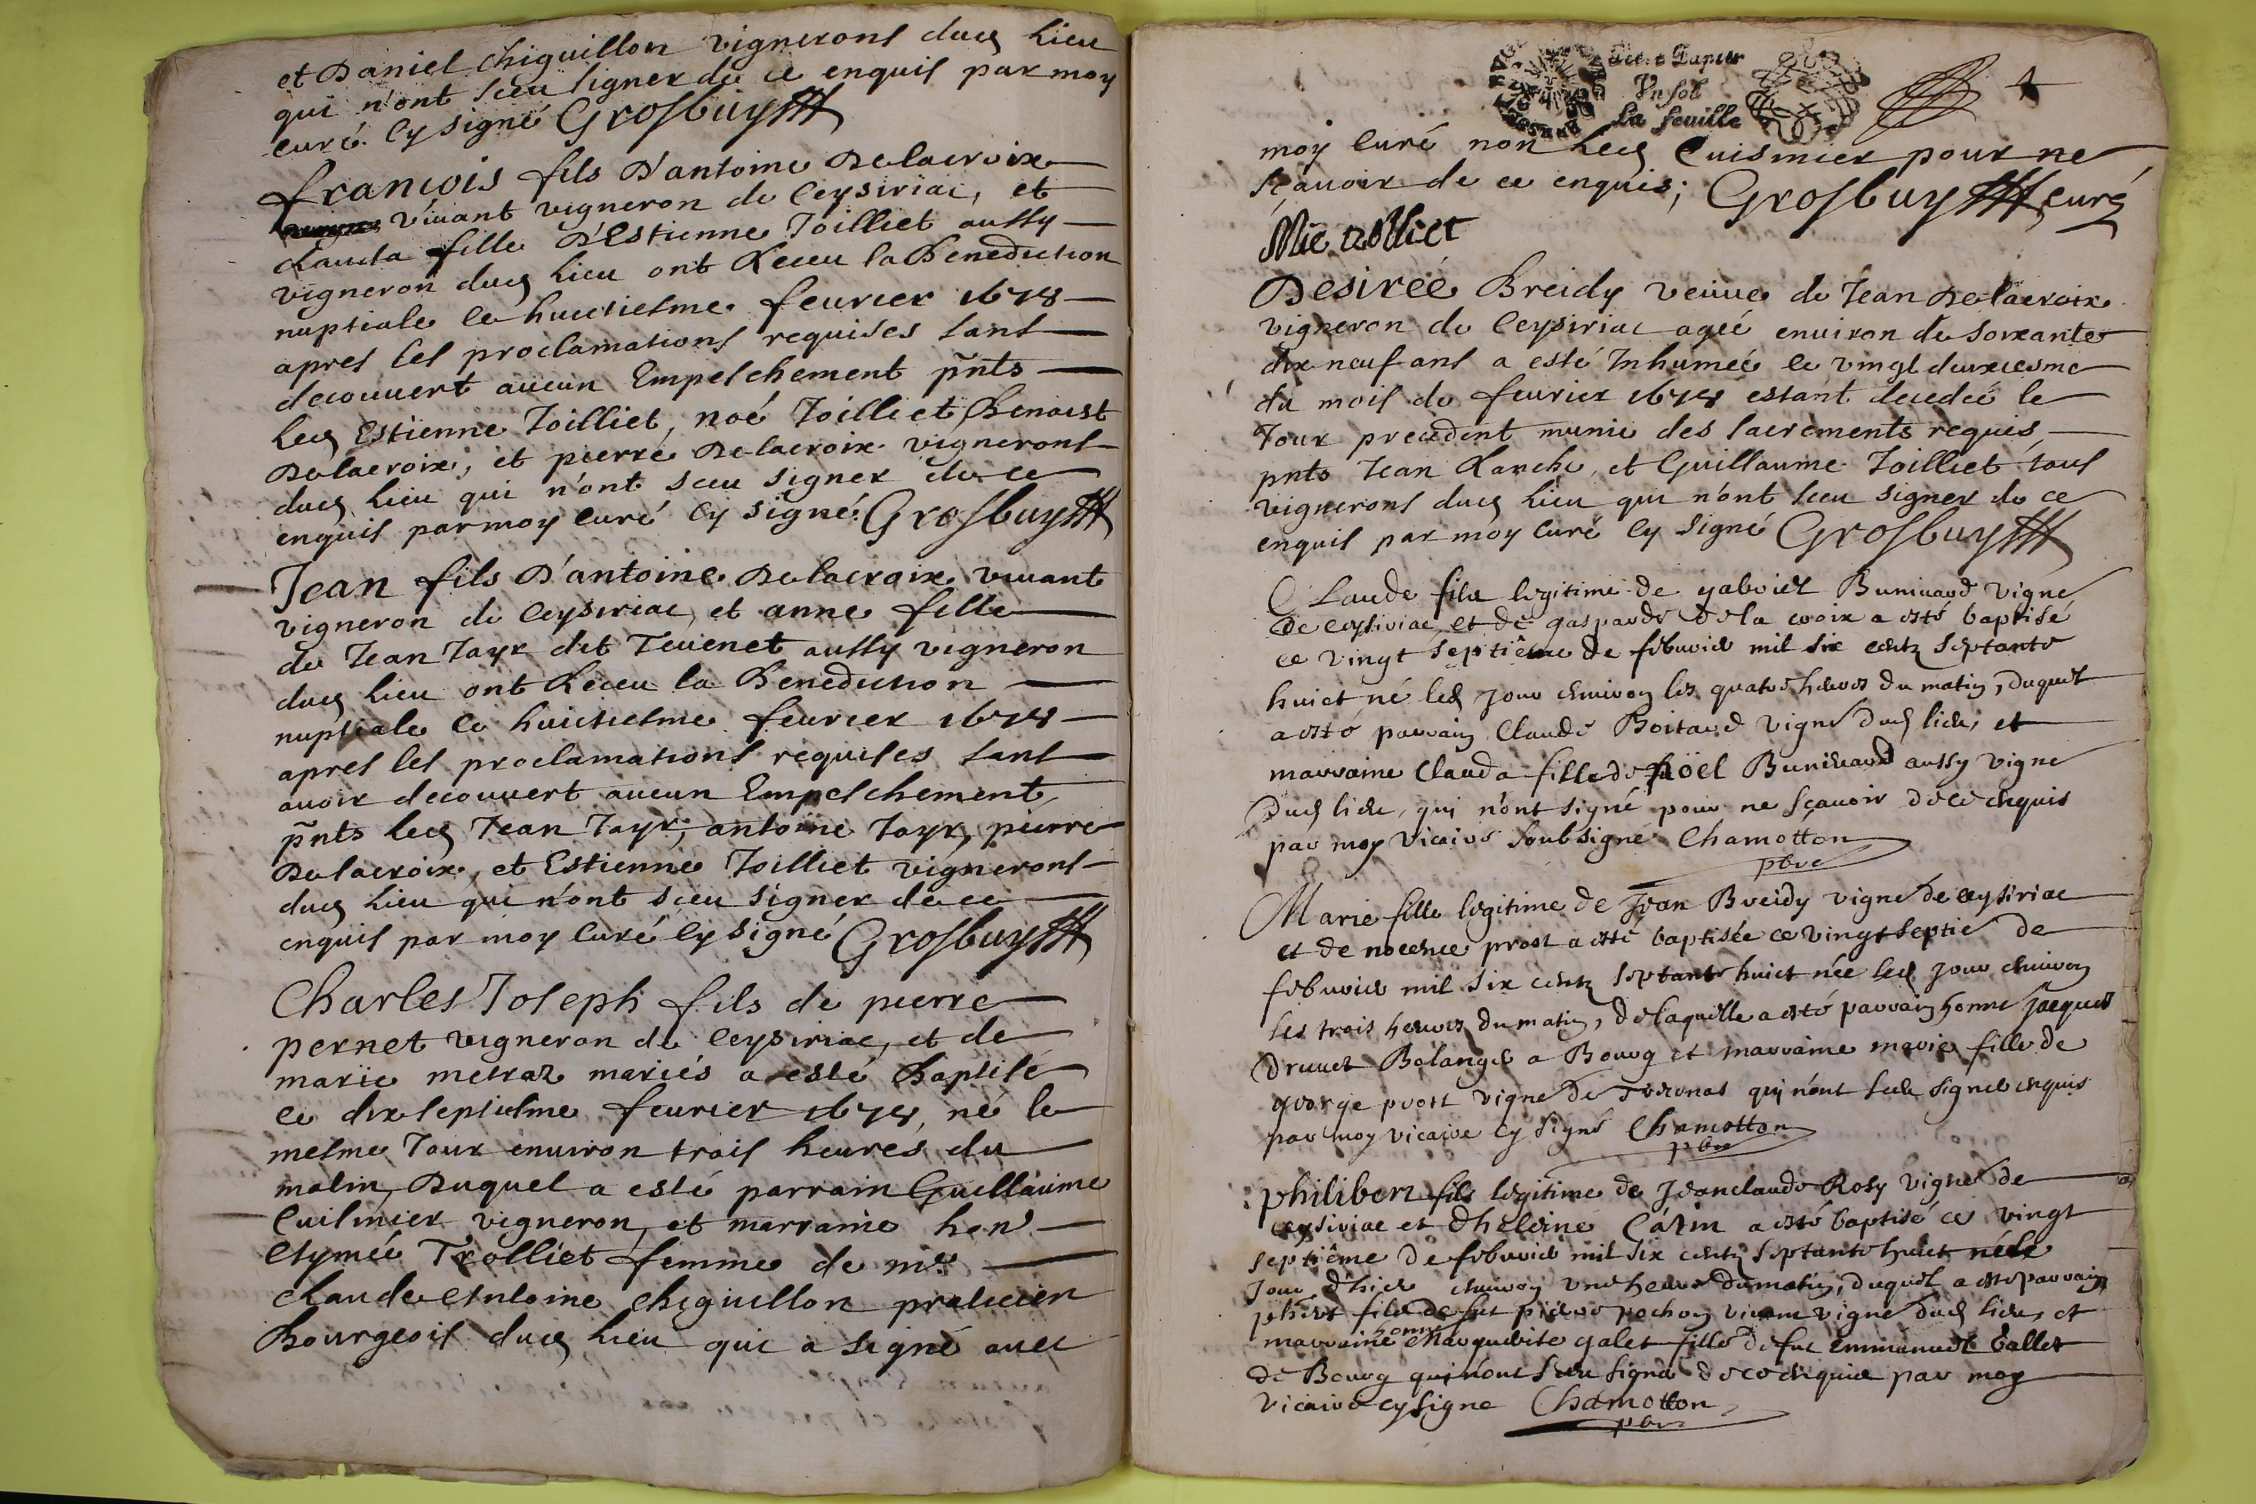 et Daniel Chiguillon vignerons dud lieu
qui n'ont sceu signer de ce enquis par moy
curé cy signé Grosbuy
françois fils D'antoine Delacroix
vivant vigneron de Ceysiriac, et
Clauda fille D'Estienne Joilliet aussy
vigneron dud lieu ont Receu la Benediction
nuptiale le huictiesme feurier 1678
apres les proclamations requises sans
decouuert aucun Empeschement pnts
led Estienne Joilliet, noé Joilliet, Benoist
Delacroix, et pierre Delacroix vignerons
dud lieu qui n'ont sceu signer de ce
enquis par moy curé cy signé Grosbuy
Jean fils D'antoine Delacroix viuant
vigneron de Ceysiriac, et anne fille
de Jean Jayr dit Teuenet aussy vigneron
dud lieu ont Receu la Benediction
nuptiale le huictiesme feurier 1678
apres les proclamations requises sans
auoir decouuert aucun Empeschement
pnts led Jean Jayr, antoine Jayr, pierre
Delacroix, et Estienne Joilliet vignerons
dud lieu qui n'ont sceu signer de ce
enquis par moy curé cy signé Grosbuy
Charles Joseph fils de pierre
pernet vigneron de Ceysiriac, et de
marie metraz mariés a esté Baptisé
le dix septiesme feurier 1678, né le
mesme Jour enuiron trois heures du
matin, Duquel a esté parrain Guillaume
Cuisinier vigneron, et marraine hon
Etymée Trolliet femme de mre
Claude Antoine Chiguillon praticien
Bourgeois dud lieu qui a signé auec
Un sol
La feuille
moy curé non led Cuisinier pour ne
sçauoir de ce enquis; Grosbuy curé
trolliet
Desireé Breidy veuue de Jean Delacroix
vigneron de Ceysiriac ageé enuiron de soixante
dix neuf ans a esté Inhumeé le vingt deuxiesme
du mois de feurier 1678 estant decedeé le
Jour precedent munie des sacrements requis,
pnts Jean Ranche, et Guillaume Joilliet tous
vignerons dud lieu qui n'ont sceu signer de ce
enquis par moy curé cy signé Grosbuy
Claude fils legitime de gabriel Buniuard vigne
de ceysiriac et de gasparde De la croix a esté baptisé
ce vingt septiême de feburier mil six centz septante
huict né led jour enuiron les quatre heures du matin, duquel
a esté parrain Claude Boitard vigne dud lieu, et
marraine Clauda fille de noël Buniuard aussy vigne
Dud lieu, qui n'ont signé pour ne sçauoir de ce enquis
par moy vicaire soubsigné Chamotton
pbre
Marie fille legitime de Jean Breidy vigne de ceysiriac
et de nocence prost a esté baptisée ce vingt septie de
feburier mil six centz septante huict née led jour enuiron
les trois heures du matin, de laquelle a esté parrain honne Jacques
druuet Bolanger a Bourg et marraine marie fille de
george prost vigne de Treconas qui n'ont sceu signer enquis
par moy vicaire cy signé Chamotton
pbre
philibert fils legitime de Jeanclaude Rosy vigne de
ceysiriac et d'heleine Catin a esté baptisé ce vingt
septiême de feburier mil six centz septante huict né le
Jour d'hier enuiron une heure du matin, duquel a esté parrain
phibert fils de fut pierre pochon viuant vigne dud lieu, et
marraine honne Marguerite galet fille de fut Emmanuel Gallet
de Bourg qui n'ont sceu signer de ce enquis par moy
vicaire cy signe Chamotton
pbre